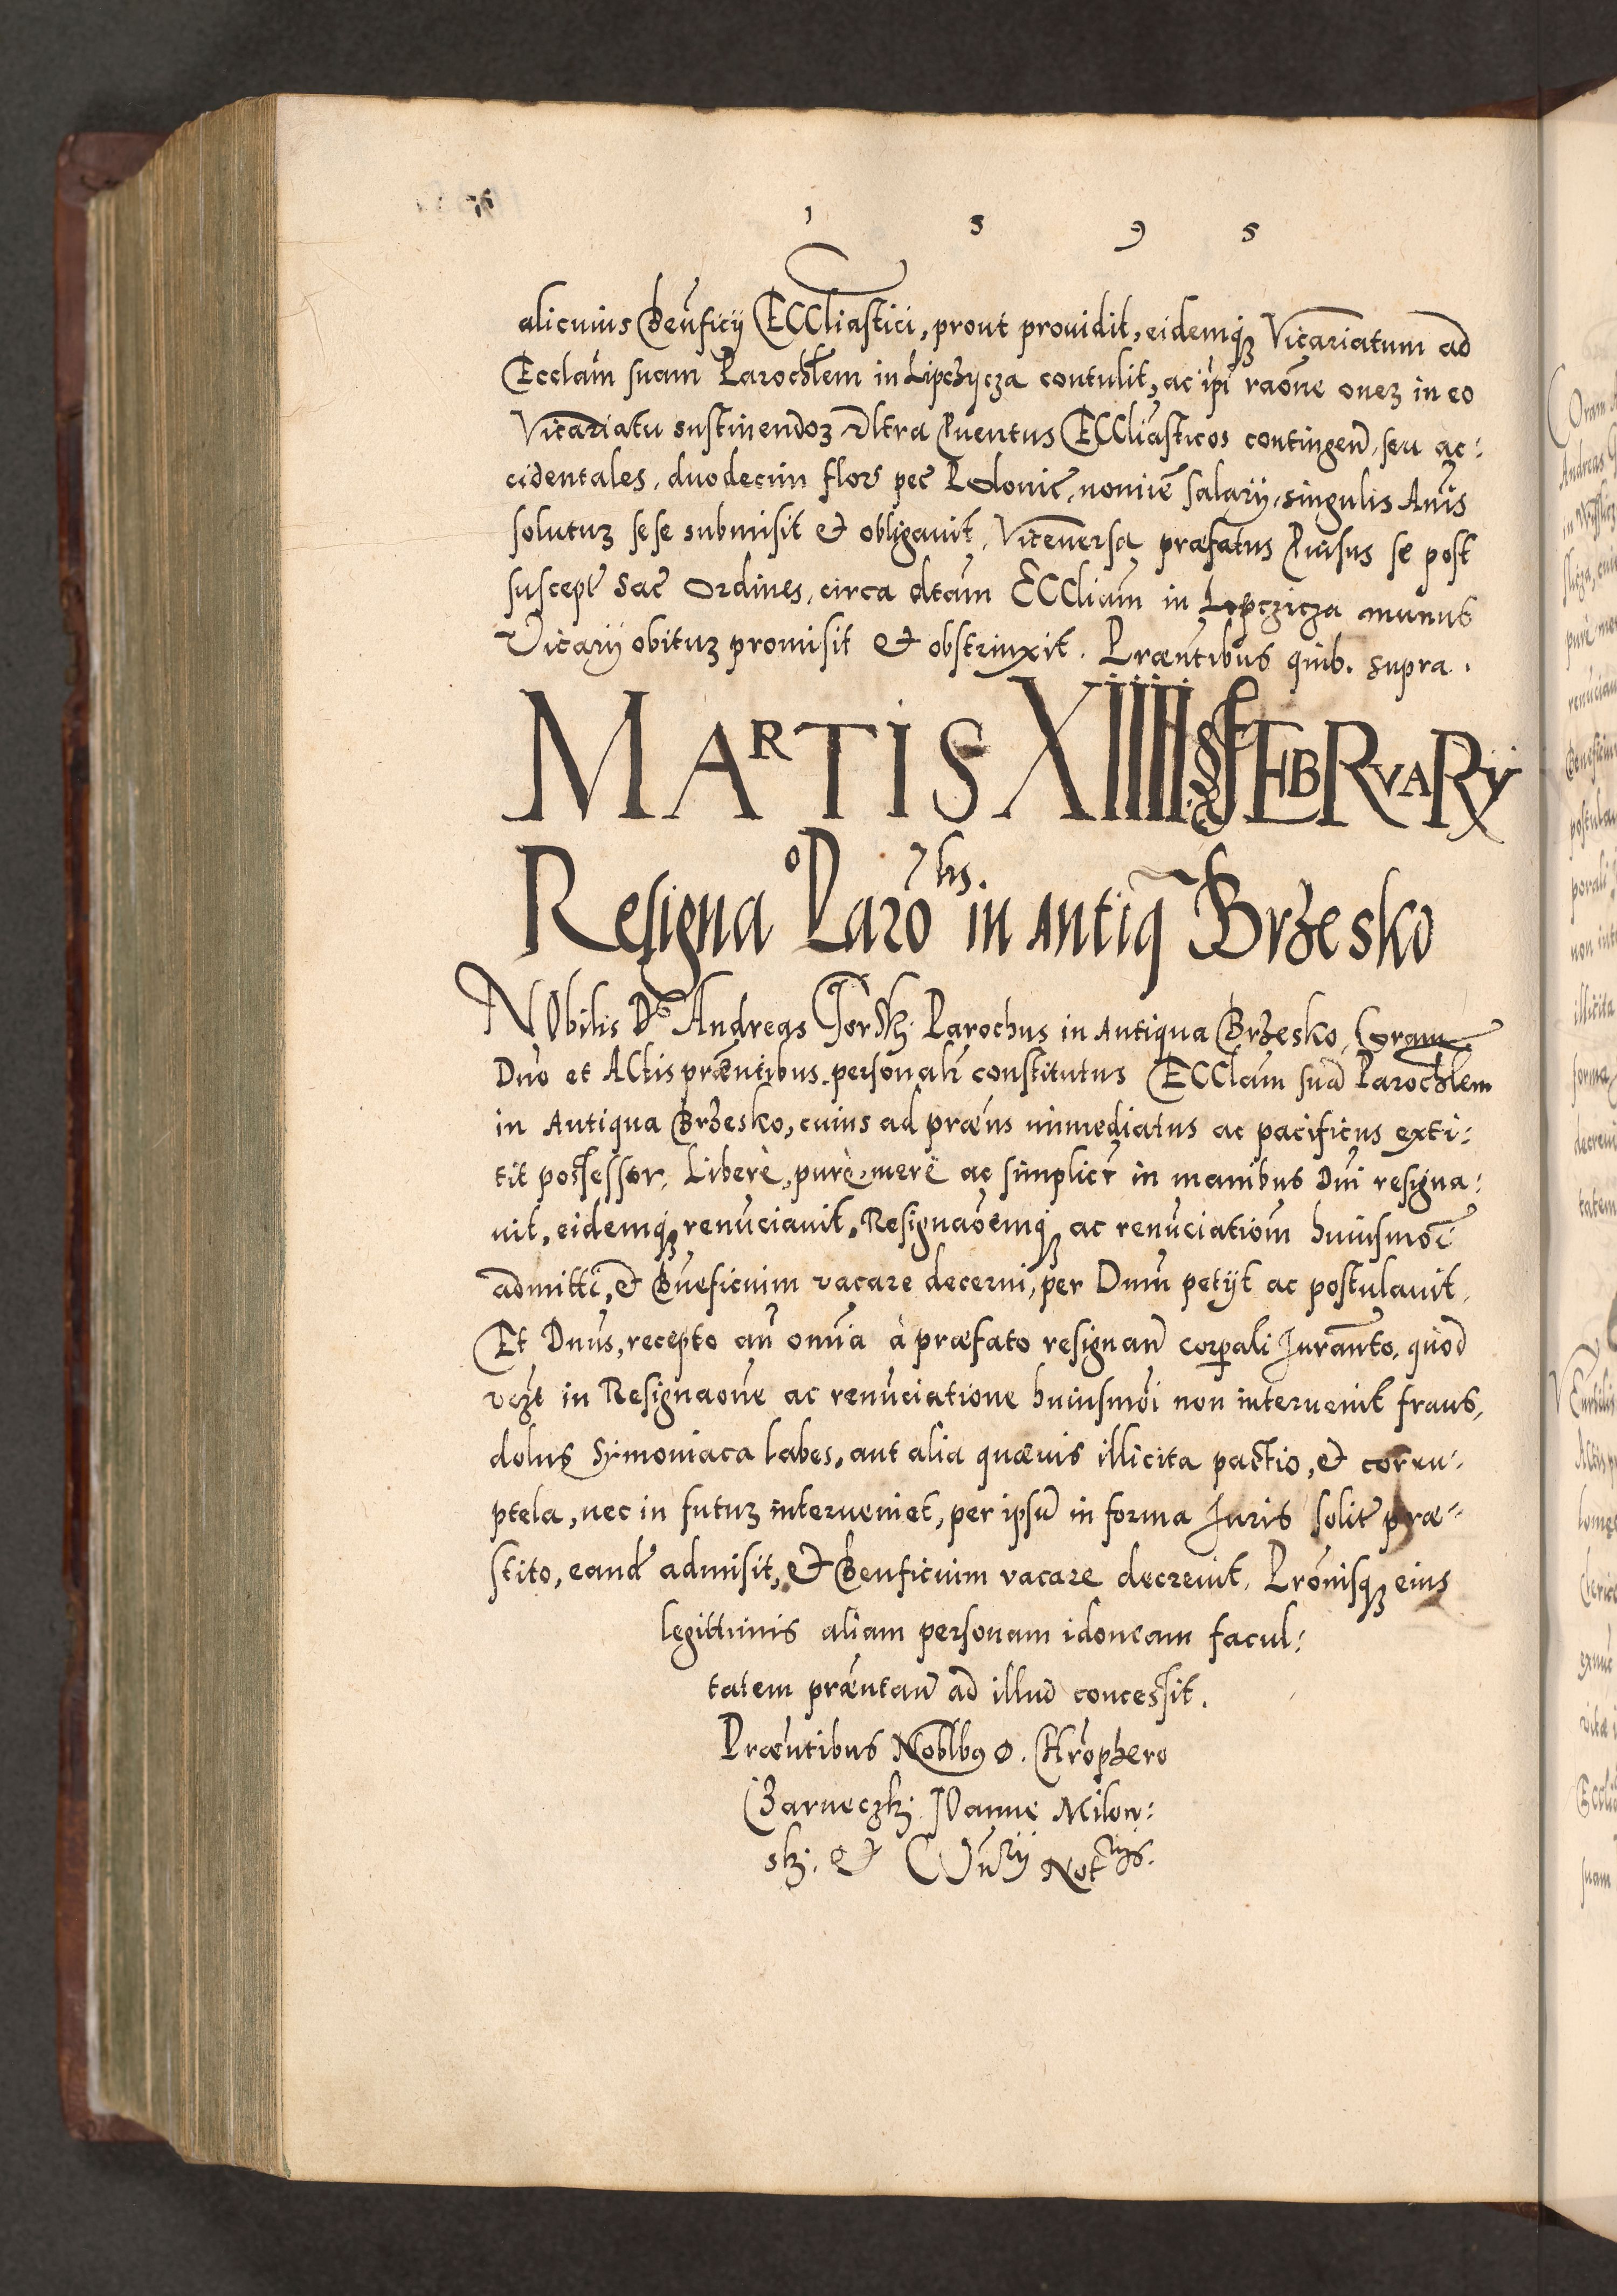 1 5 9 5
alicuius Benficij ECCliastici, prout prouidit, eidemq; Vicariatum ad
Ecclam suam Parochlem in Lipczycza contulit, ac ipi raone onez in eo
Vicariatu sustinendoz Vltra Puentus ECCliasticos contingen, seu ac:
cidentales, duodecim flor pec Polonic, nomine salarij, singulis Anis
soluturz sese submisit et obligauit. Viceuersa præfatus Puisus se post
suscept sac Ordines, circa dtam ECCliam in Lopczicza munus
Vicarij obiturz promisit et obstrinxit. Præntibus quib. supra.
MARTIS XIIII FEBRVARY
Resignao Parolis in antiq Brzesko
NObilis Ds Andreas Gorsk: Parochus in Antiqua Brzesko, Coram
Dno et ACtis præntibus personalr constitutus ECClam sua Parochlem
in Antiqua Brzesko, cuius ad præns immediatus ac pacificus exti:
tit possessor, Liberè, purè, merè ac simplicr in manibus Dni resigna:
uit, eidemq; renunciauit, Resignaoemq; ac renunciatiom huiusmoi
admitti, et Bneficium vacare decerni, per Dnum petijt ac postulauit.
Et Dnus, recepto an omnia à præfato resignan corpali Iuramto, quod
vezt in Resignaone ac renunciatione huiusmoi non interuenit fraus,
dolus Symoniaca labes, aut alia quæuis illicita pactio, et corru:
ptela, nec in futurz interueniet, per ipsu in forma Iuris solit præ:
stito, eand admisit, et Benficium vacare decreuit. Pronisq; eius
legittimis aliam personam idoneam facul:
tatem præntan ad illud concessit.
Præntibus Noblb9 D. Chrophero
Barneczk: IOanne Milow:
sk: et Notrijs.